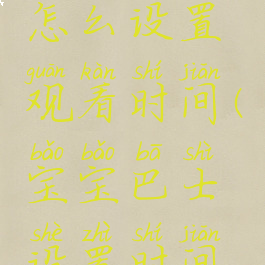 怎么设置
guān kàn shí jiān
观看时间(
bǎo bǎo bā shì
宝宝巴士
shè zhì shí jiān
设置时间